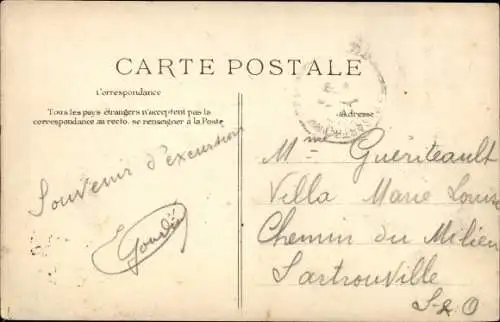 CARTE POSTALE
Correspondance
Tous les pays étrangers n'acceptent pas la
correspondance au recto. se renseigner à la Poste
Adresse
Souvenir d'excursion
Mme Guériteault
Villa Marie Louise
Chemin du Milieu
Sartrouville
S & O